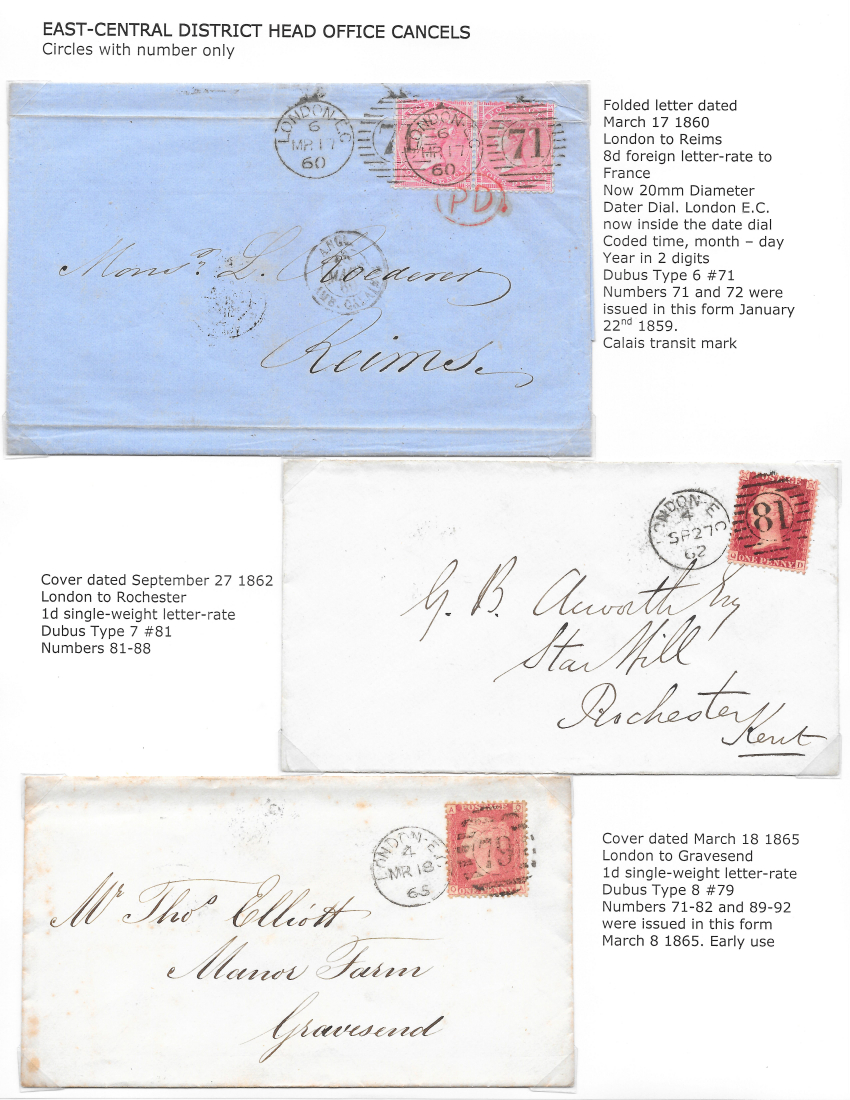 EAST-CENTRAL DISTRICT HEAD OFFICE CANCELS
Circles with number only
LONDON E.C
6
MR 17
60
LONDON E.C
6
MR 17
60
71
PD
ANGL.
Monsr. L. Roederer
Reims.
Folded letter dated
March 17 1860
London to Reims
8d foreign letter-rate to
France
Now 20mm Diameter
Dater Dial. London E.C.
now inside the date dial
Coded time, month – day
Year in 2 digits
Dubus Type 6 #71
Numbers 71 and 72 were
issued in this form January
22nd 1859.
Calais transit mark
LONDON-E.C
4
SP27
62
81
ONE PENNY
G. B. Acworth Esq
Star Hill
Rochester
Kent
Cover dated September 27 1862
London to Rochester
1d single-weight letter-rate
Dubus Type 7 #81
Numbers 81-88
LONDON-E.C
4
MR 18
65
79
Mr Thos Elliott
Manor Farm
Gravesend
Cover dated March 18 1865
London to Gravesend
1d single-weight letter-rate
Dubus Type 8 #79
Numbers 71-82 and 89-92
were issued in this form
March 8 1865. Early use